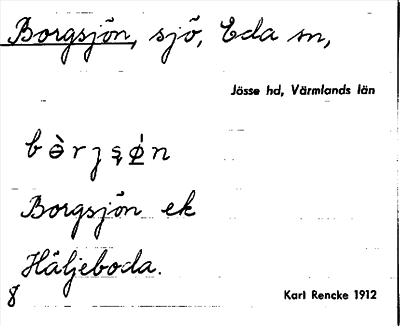 Borgsjön, sjö, Eda sn,
Jösse hd, Värmlands län
Borgsjön ek
Häljeboda.
8
Karl Rencke 1912